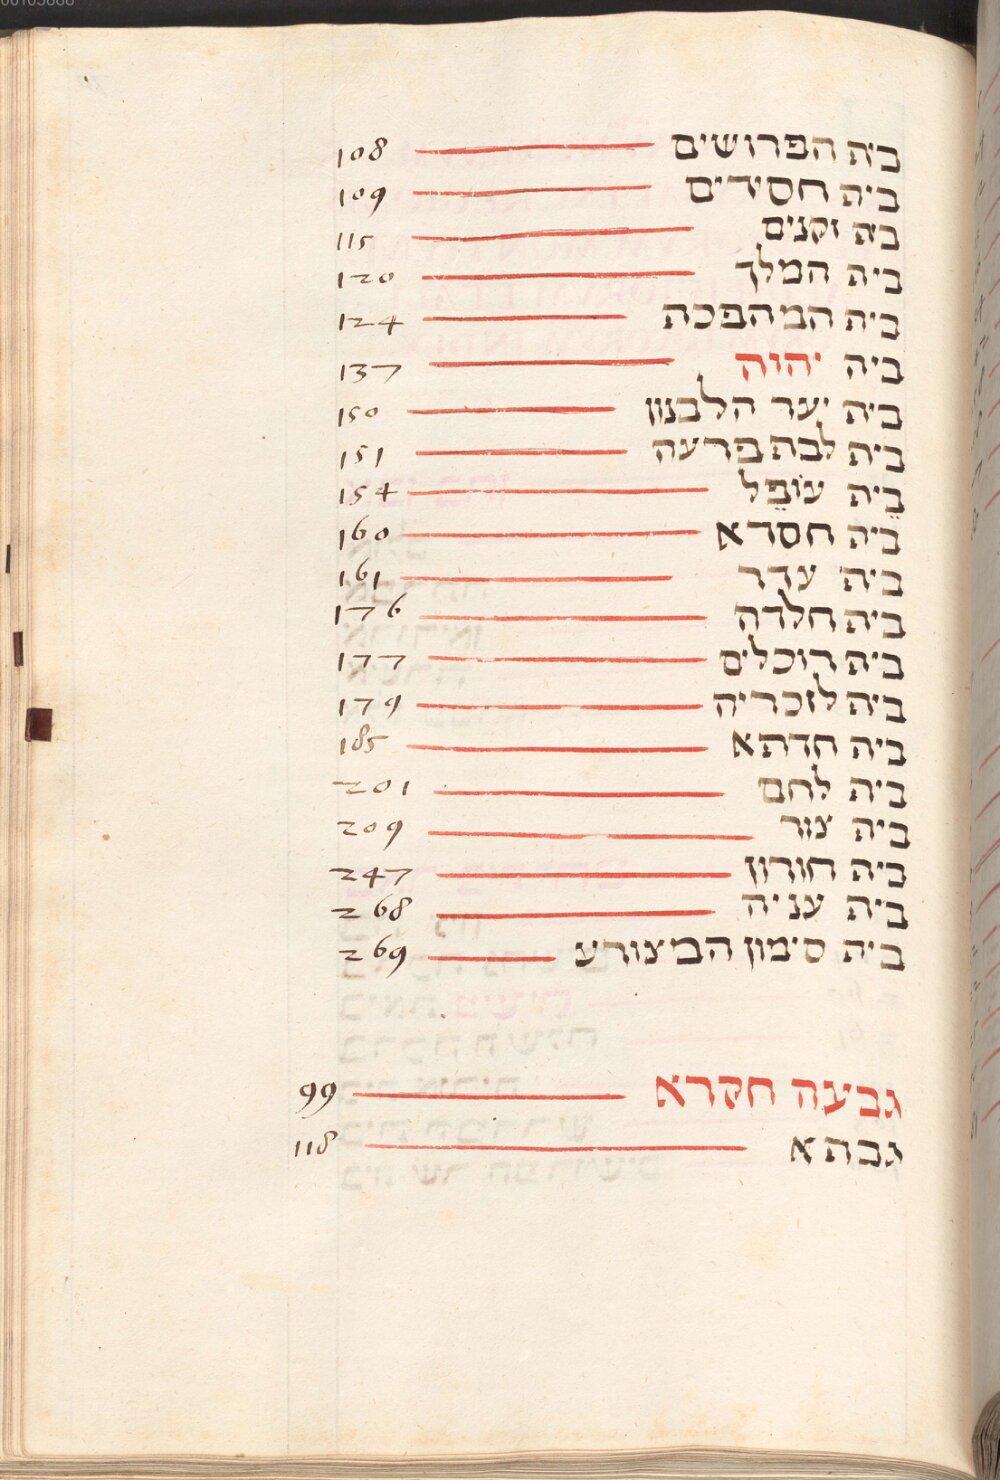 בית הפרושים 108
בית חסידים 109
בית זקנים 115
בית המלך 120
בית המהפכת 124
בית יהוה 137
בית יער הלבנון 150
בית לבת פרעה 151
בית עופל 154
בית חסדא 160
בית עדר 161
בית חלדה 176
בית רוכלים 177
בית לזכריה 179
בית חדתא 185
בית לחם 201
בית צור 209
בית חורון 247
בית עניה 268
בית סימון המצורע 269
גבעה חקרא 99
גבתא 118